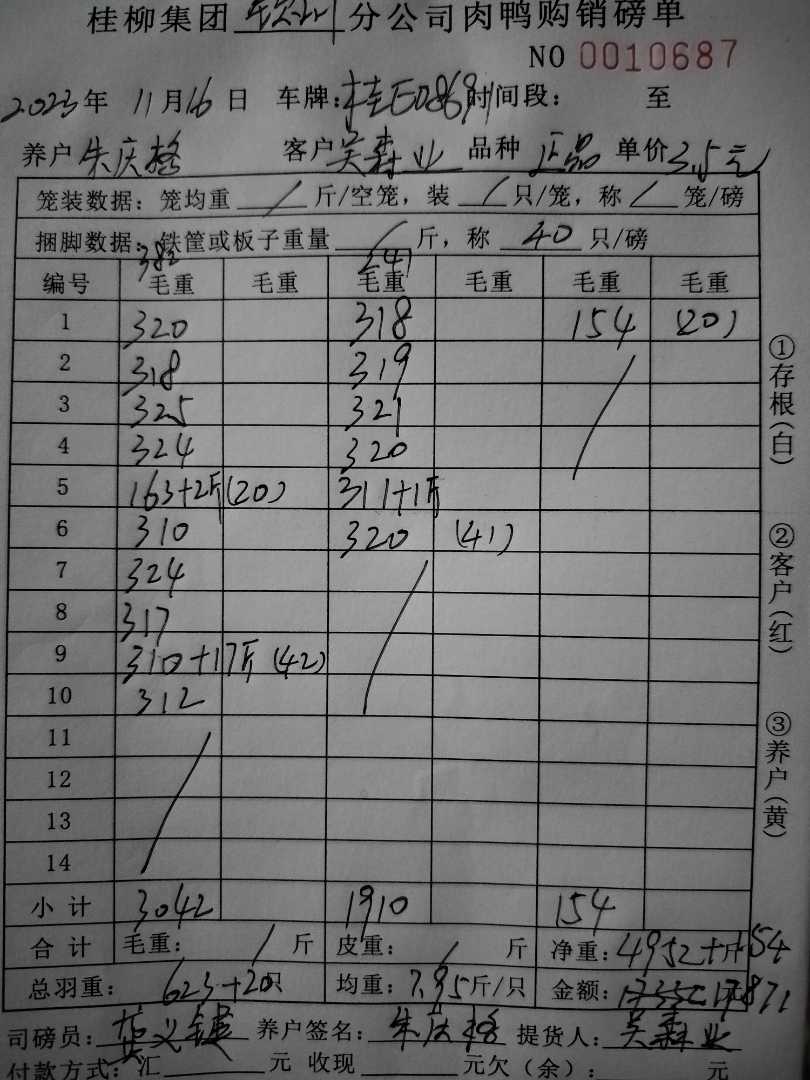 桂柳集团 钦州 分公司肉鸭购销磅单
NO 0010687
2023年 11月16日 车牌:桂E0869 时间段: 至
养户 朱庆格 客户 吴森业 品种 正品 单价 3.5元
笼装数据: 笼均重 / 斤/空笼, 装 / 只/笼, 称 / 笼/磅
捆脚数据: 铁筐或板子重量 / 斤, 称 40 只/磅
382 241
编号 毛重 毛重 毛重 毛重 毛重 毛重
1 320 318 154 (20)
2 318 319
3 325 321
4 324 320
5 163+2斤(20) 311+1斤
6 310 320 (41)
7 324
8 317
9 310+17斤(42)
10 312
11
12
13
14
小计 3042 1910 154
合计 毛重: / 斤 皮重: / 斤 净重: 4952+斤154
总羽重: 623+20只 均重: 7.95斤/只 金额: 17871
司磅员: 养户签名: 朱庆格 提货人: 吴森业
付款方式: 汇 元 收现 元欠(余): 元
①存根(白)
②客户(红)
③养户(黄)